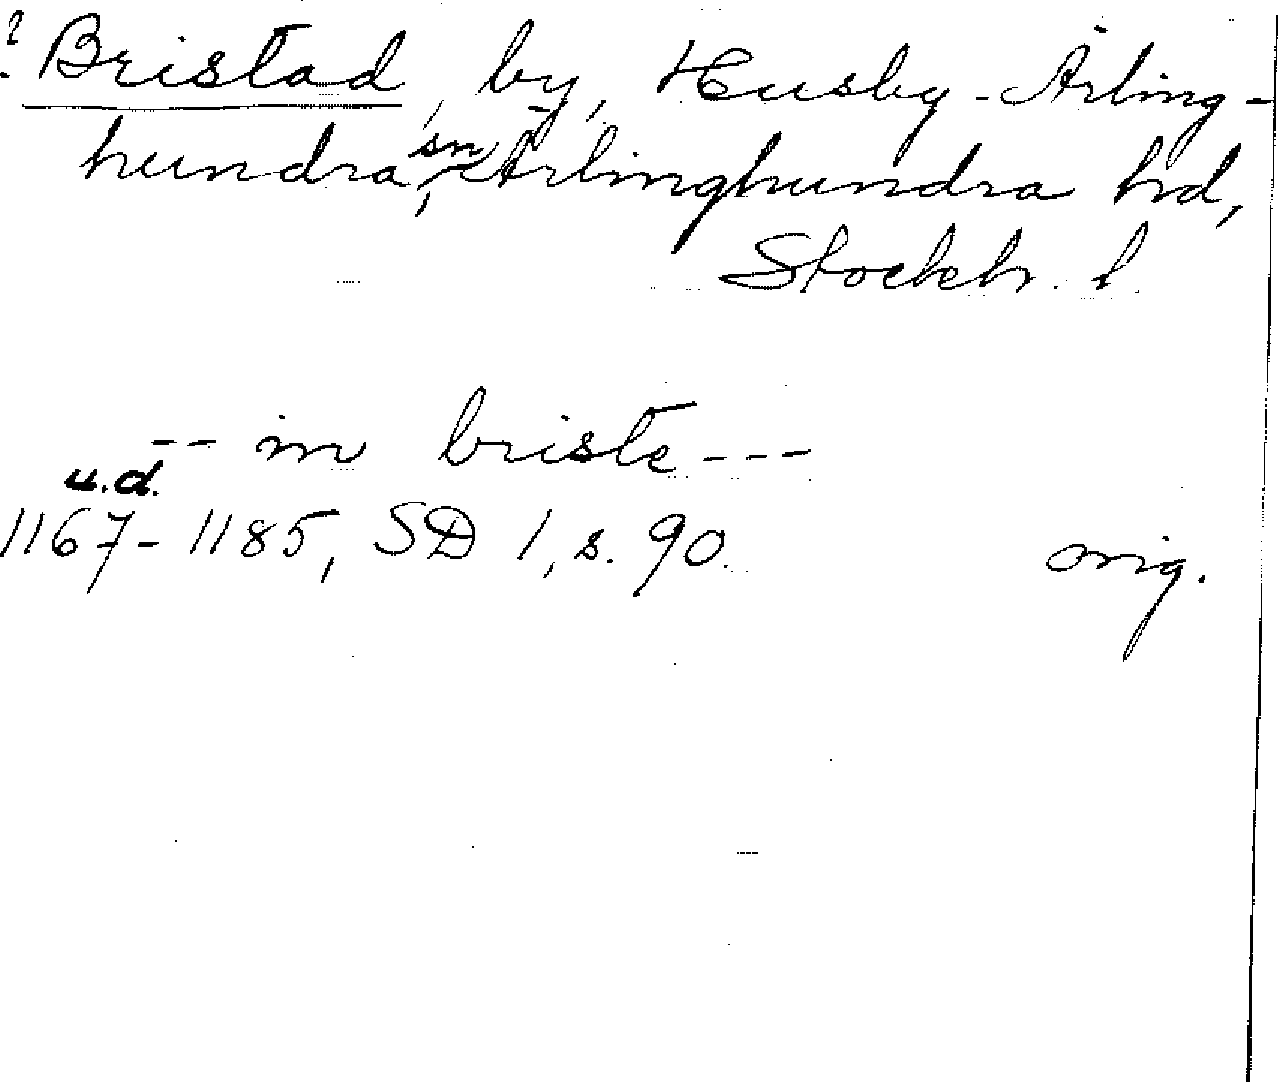 ? Bristad, by, Husby-Ärling-
hundra, sn Ärlinghundra hd,
Stockh. l.
-- in briste ---
u.d.
1167-1185, SD 1, s. 90. orig.